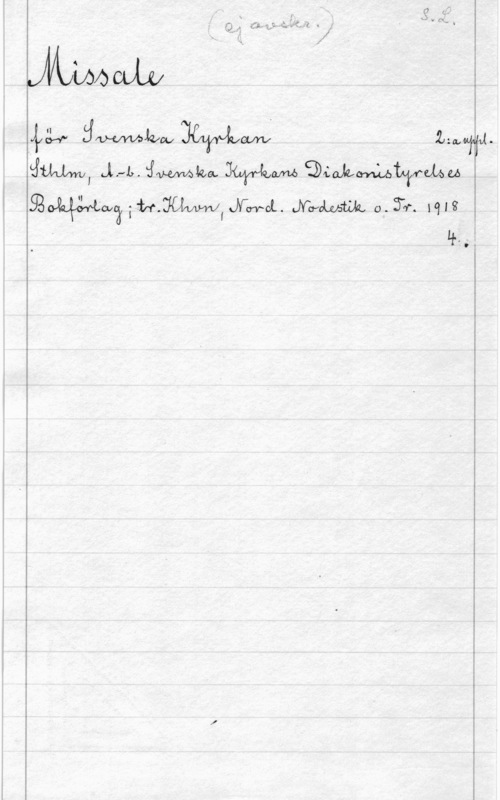 (ej avskr.) S.L.
Missale
för Svenska Kyrkan 2:a uppl.
Sthlm, A.-b. Svenska Kyrkans Diakonistyrelses
Bokförlag; tr. Khvn, Nord. Nodestik o. Tr. 1918
4.